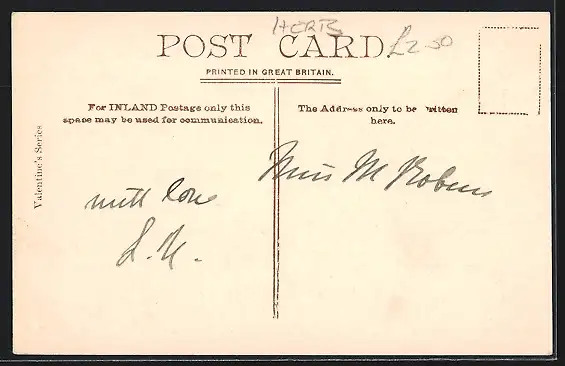 HERTS
POST CARD.
£2-50
PRINTED IN GREAT BRITAIN.
For INLAND Postage only this
space may be used for communication.
The Address only to be written
here.
Valentine's Series
with love
Miss M